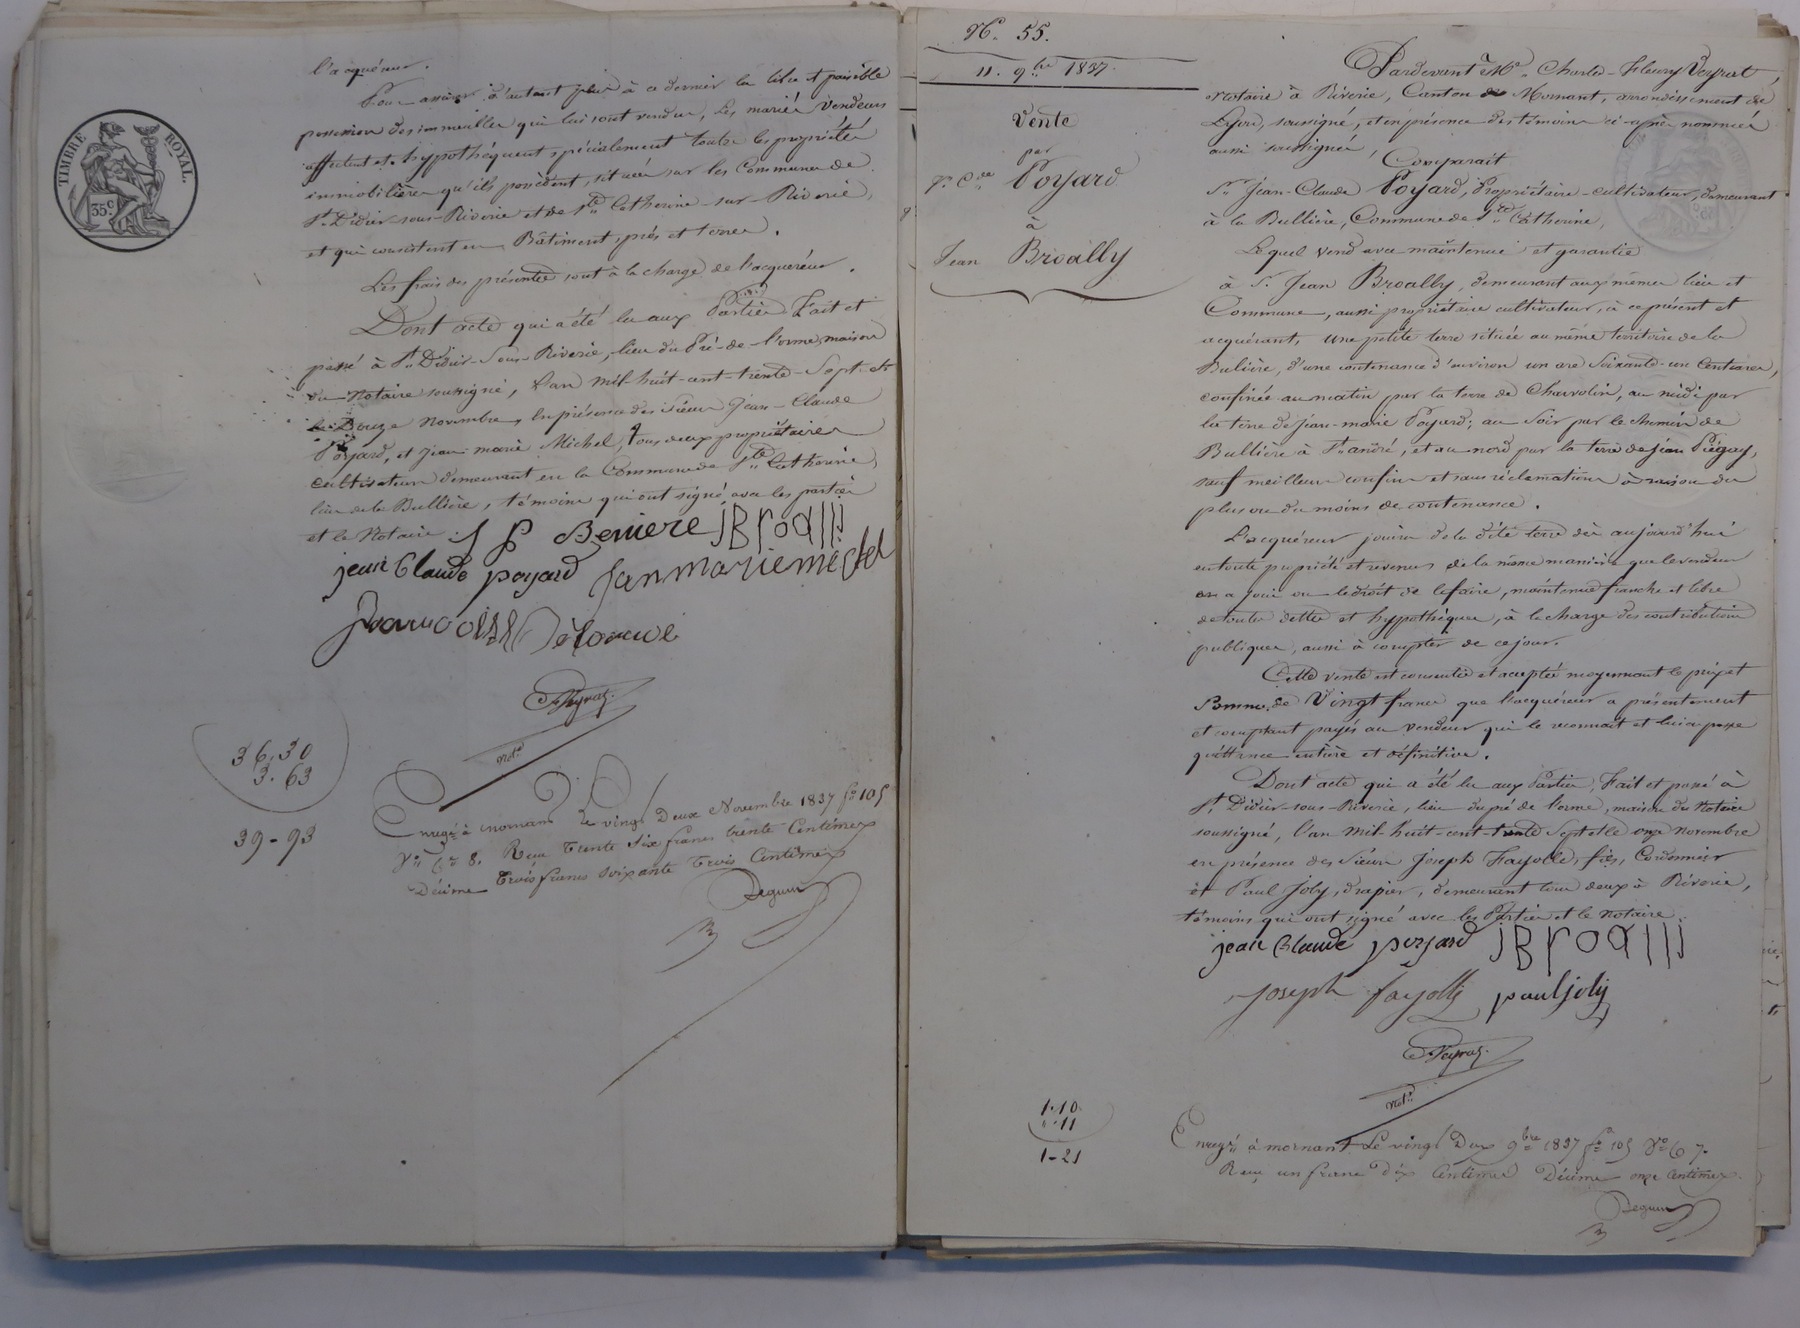 l'acquéreur.
Pour assurer d'autant plus à ce dernier la libre et paisible
possession des immeubles qui lui sont vendus, les mariés vendeurs
affectent et hypothèquent spécialement toutes les propriétés
immobilières qu'ils possèdent, situées sur les Communes de
St. Didier-sous-Riverie et de Ste Catherine-sur-Riverie,
et qui consistent en Bâtiments, prés et terres.
Les frais des présentes sont à la charge de l'acquéreur.
Dont acte qui a été lu aux Parties Fait et
passé à St. Didier-Sous-Riverie, lieu du Pré-de-l'orme, maison
du Notaire soussigné, l'an mil-huit-cent-trente-Sept et
le Douze novembre, en présence des sieurs Jean-Claude
Poyard, et Jean-marie Michel, tous deux propriétaires
cultivateurs demeurant en la Commune de Ste Catherine,
lieu de la Bullière, témoins qui ont signé avec les parties
et le Notaire.
J P Beniere jBroallj
jean Claude poyard janmariemichel
TIMBRE ROYAL.
35.c
Veyrat
Not.re
36,30
3.63
39-93
Enregé à mornant Le vingt Deux Novembre 1837 fo 105
Vo Ce 8. Reçu Trente Six francs trente Centimes
Décime Trois francs soixante Trois Centimes
Deguin
No. 55.
11. 9bre 1837.
Vente
par
Jn Cde Poyard
à
Jean Broally
Pardevant Me. Charles-Fleury Veyrat,
Notaire à Riverie, Canton de Mornant, arrondissement de
Lyon, soussigné, et en présence des témoins ci-après nommés
aussi soussignés,
Comparait
Sr. Jean-Claude Poyard, Propriétaire-cultivateur, demeurant
à la Bullière, Commune de Ste Catherine,
Lequel vend avec maintenue et garantie
à Sr. Jean Broally, demeurant aux mêmes lieu et
Commune, aussi propriétaire cultivateur, à ce présent et
acquérant, Une petite terre située au même territoire de la
Bulière, d'une contenance d'environ un are Soixante-un Centiares,
confinée au matin par la terre de Charvolin, au midi par
la terre de Jean-marie Poyard; au Soir par le chemin de
Bullière à St. andré, et au nord par la terre de Jean Piégay,
sauf meilleurs confins et sans réclamation à raison du
plus ou du moins de contenance.
L'acquéreur jouira de la dite terre dès aujourd'hui
en toute propriété et revenus de la même manière que le vendeur
en a joui ou le droit de le faire, maintenue franche et libre
de toutes dettes et hypothèques, à la charge des contributions
publiques, aussi à compter de ce jour.
Cette vente est consentie et acceptée moyennant le prix et
Somme de Vingt francs que l'acquéreur a présentement
et comptant payés au vendeur qui le reconnait et lui a passe
quittance entière et définitive.
Dont acte qui a été lu aux Parties, Fait et passé à
St. Didier-sous-Riverie, lieu du pré de l'orme, maison du Notaire
soussigné, l'an mil-huit-cent-trente Sept et le onze novembre
en présence des Sieurs Joseph Fayolle, fils, Cordonnier
et Paul Joly, drapier, demeurant tous deux à Riverie,
témoins qui ont signé avec les Parties et le Notaire.
jean Claude poyard jBroallj
joseph fayolle pauljoly
Veyrat
Not.re
1.10
"11
1-21
Enregé à mornant Le vingt Deux 9bre 1837 fo 105 Vo C 7.
Reçu un franc dix Centimes Décime onze Centimes.
Deguin